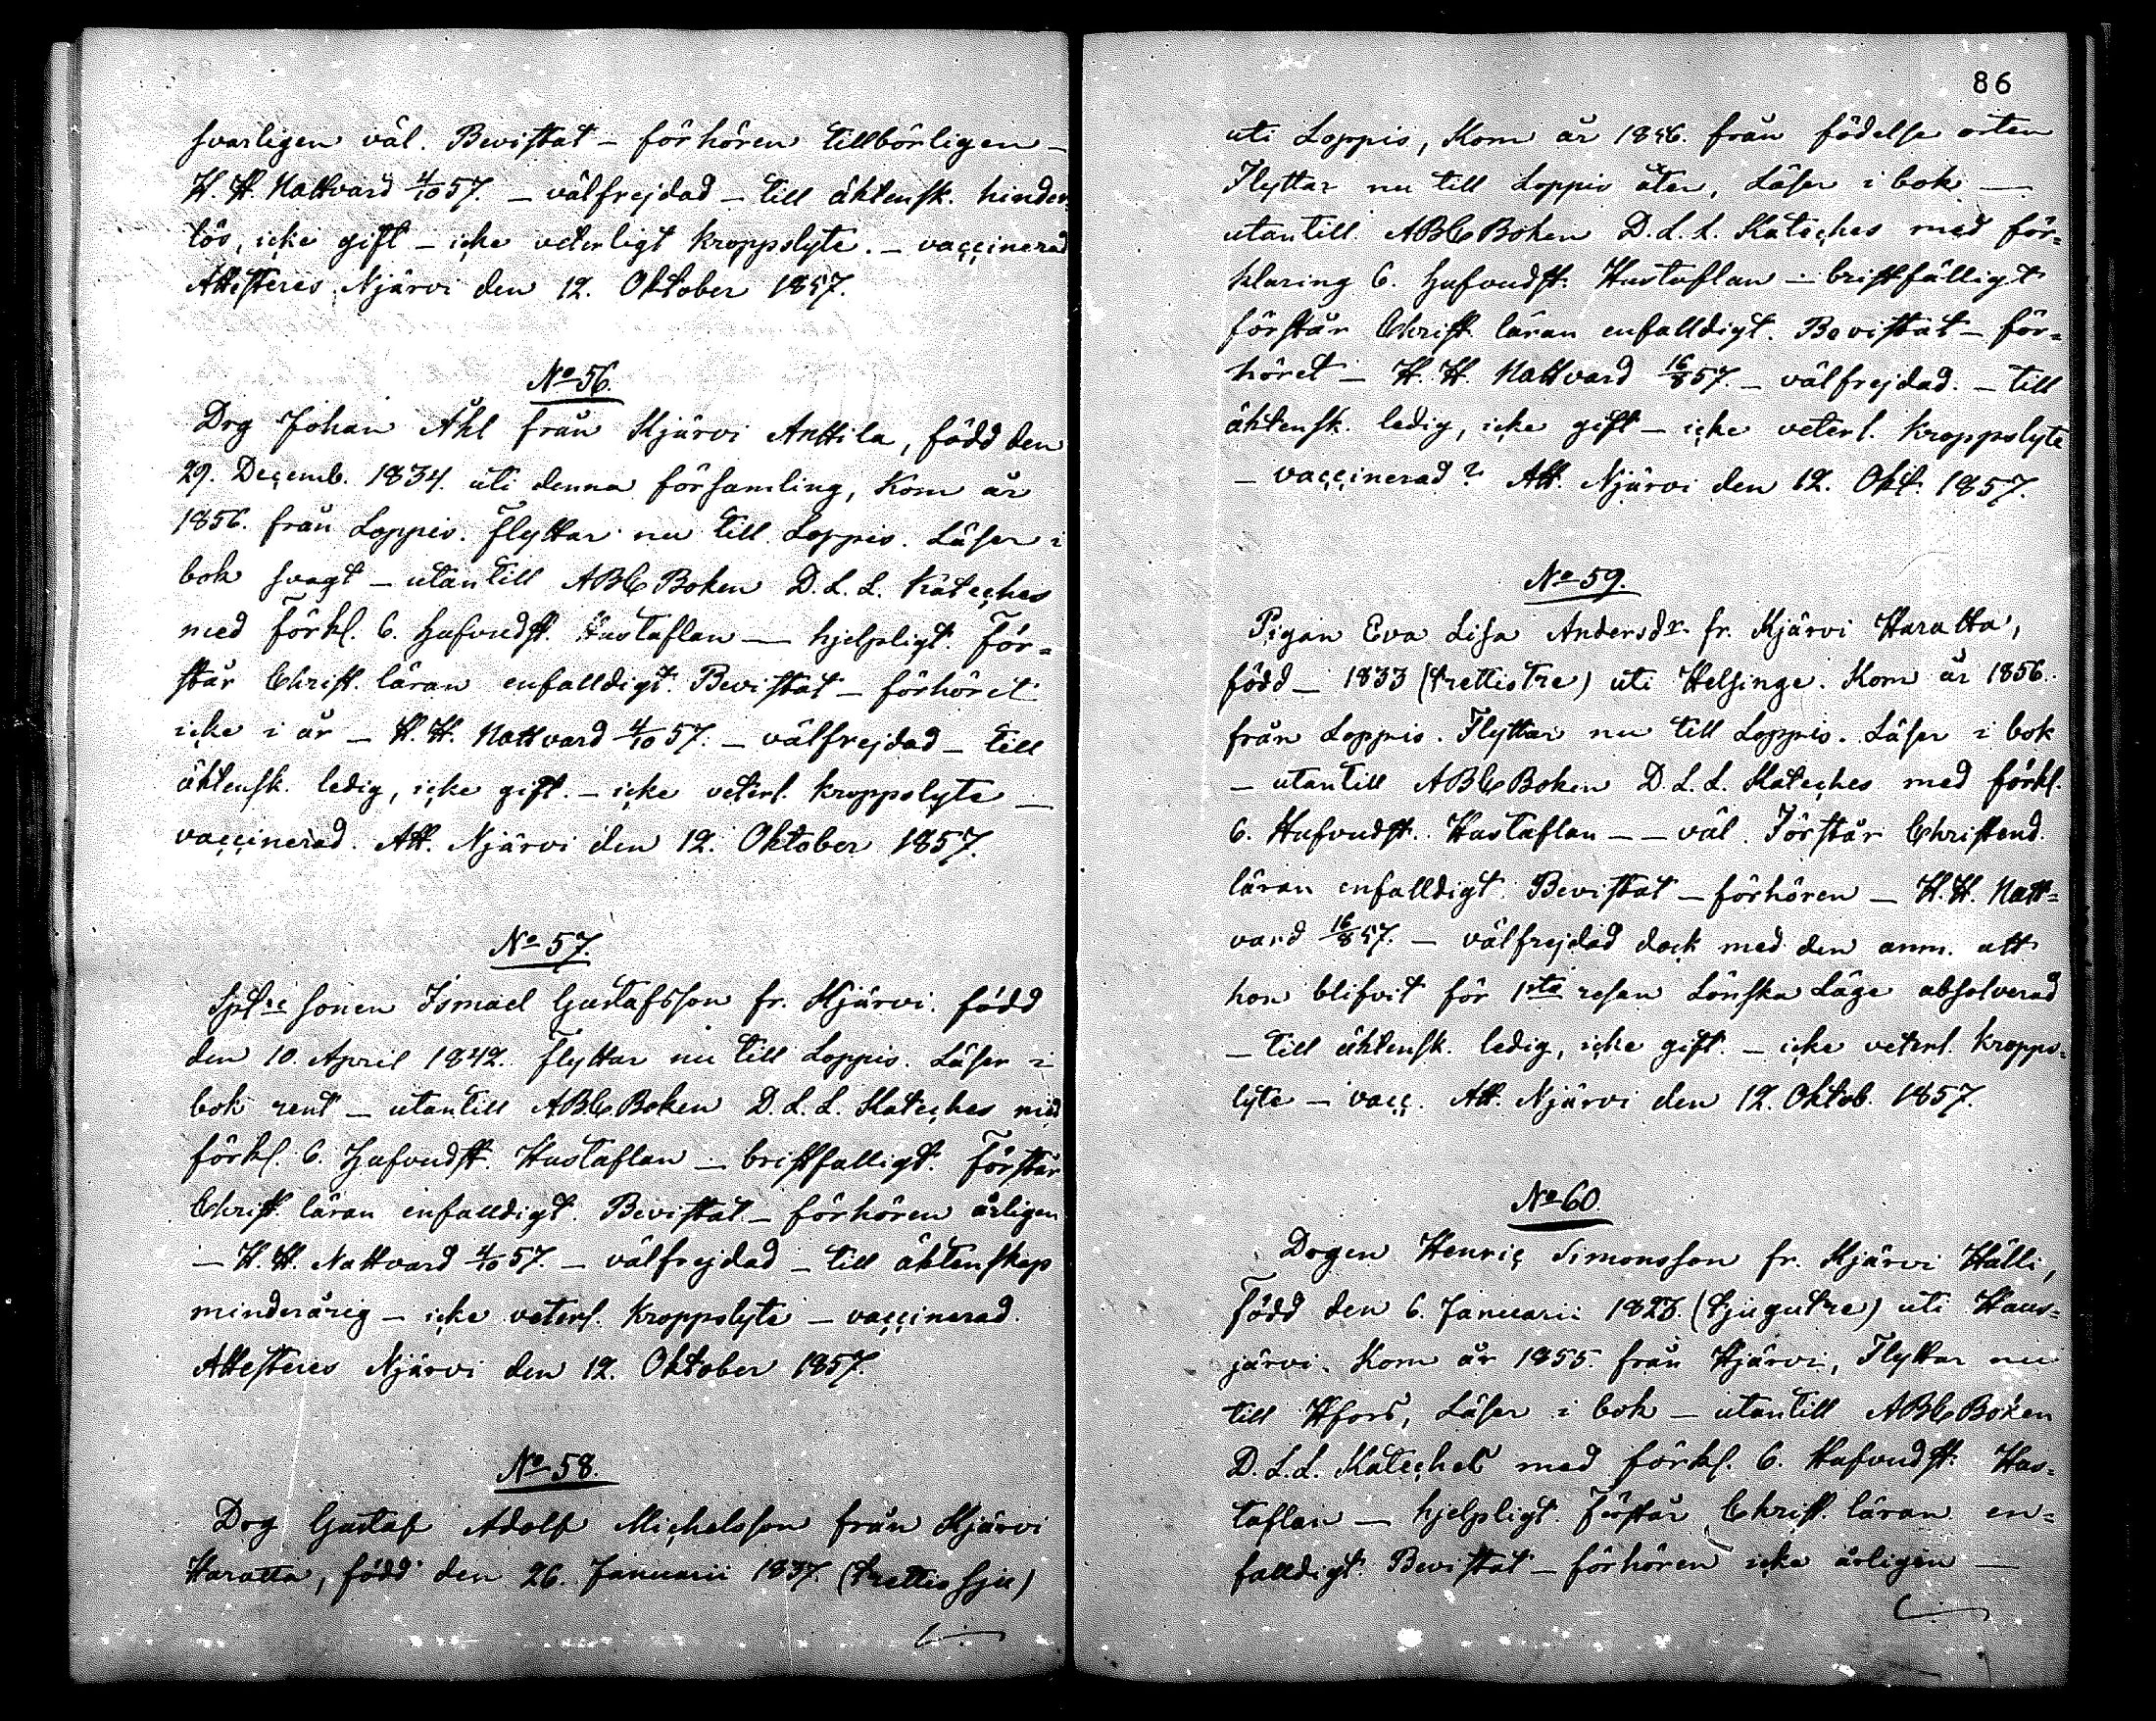 svarligen väl. Bevistat – förhören tillbörligen –
H. H. Nattvard 4/10 57. – välfrejdad – till äktensk. hinder-
lös, icke gift – icke veterligt kroppslyte. – vaccinerad
Attesteres Njärvi den 12. Oktober 1857.
No 56.
Drg Johan Åhl från Kjärvi Anttila, född den
29. Decemb. 1834. uti denna församling, Kom år
1856. från Loppis. Flyttar nu till Loppis. Läser i
bok svagt – utantill ABC Boken D. L. L. Kateches
med förkl. 6. Hufvudst. Hustaflan – hjelpligt. För=
står Christ. läran enfalldigt. Bevistat – förhöret
icke i år – H. H. Nattvard 4/10 57. – välfrejdad – till
äktensk. ledig, icke gift. – icke veterl. kroppslyte –
vaccinerad. Att. Njärvi den 12. Oktober 1857.
No 57.
Sonen Ismael Gustafsson fr. Kjärvi. född
den 10. April 1842. Flyttar nu till Loppis. Läser i
bok rent – utantill ABC Boken D. L. L. Kateches med
förkl. 6. Hufvudst. Hustaflan – bristfälligt. Förstår
Christ. läran enfalldigt. Bevistat – förhören årligen
– H. H. Nattvard 4/10 57. – välfrejdad – till äktenskap
minderårig – icke veterl. kroppslyte – vaccinerad.
Attesteres Njärvi den 12. Oktober 1857.
No 58.
Drg Gustaf Adolf Michelsson från Kjärvi
Haratta, född den 26. Januarii 1837. (trettio sju)
86
uti Loppis, Kom år 1856. från födelse orten
Flyttar nu till Loppis åter, Läser i bok –
utantill ABC Boken D. L. L. Kateches med för=
klaring 6. Hufvudst. Hustaflan – bristfälligt
förstår Christ. läran enfalldigt. Bevistat – för=
höret – H. H. Nattvard 16/8 57. – välfrejdad. – till
äktensk. ledig, icke gift – icke veterl. kroppslyte
– vaccinerad? Att. Njärvi den 12. Okt. 1857.
No 59.
Pigan Eva Lisa Andersdr. fr. Kjärvi Haratta,
född – 1833 (trettistre) uti Helsinge. Kom år 1856.
från Loppis. Flyttar nu till Loppis. Läser i bok
– utantill ABC Boken D. L. L. Kateches med förkl.
6. Hufvudst. Hustaflan – – väl. Förstår Christend.
läran enfalldigt. Bevistat – förhören – H. H. Natt=
vard 16/8 57. – välfrejdad dock med den anm. att
hon blifvit för 1sta resan Lönska Läge absolverad
– till äktensk. ledig, icke gift. – icke veterl. kropps=
lyte – vacc. Att. Njärvi den 12. Oktob. 1857.
No 60.
Drgen Henric Simonsson fr. Kjärvi Hälli,
Född den 6. Januarii 1823. (tjugutre) uti Haus=
järvi. Kom år 1855. från Hjärvi, Flyttar nu
till Hfors, Läser i bok – utantill ABC Boken
D. L. L. Kateches med förkl. 6. Hufvudst. Hus=
taflan – hjelpligt. Förstår Christ. läran en=
falldigt. Bevistat – förhören icke årligen –